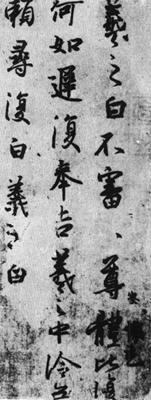 羲之白不審、尊體比復
何如遲復奉告羲之中冷無
賴尋復白羲之白